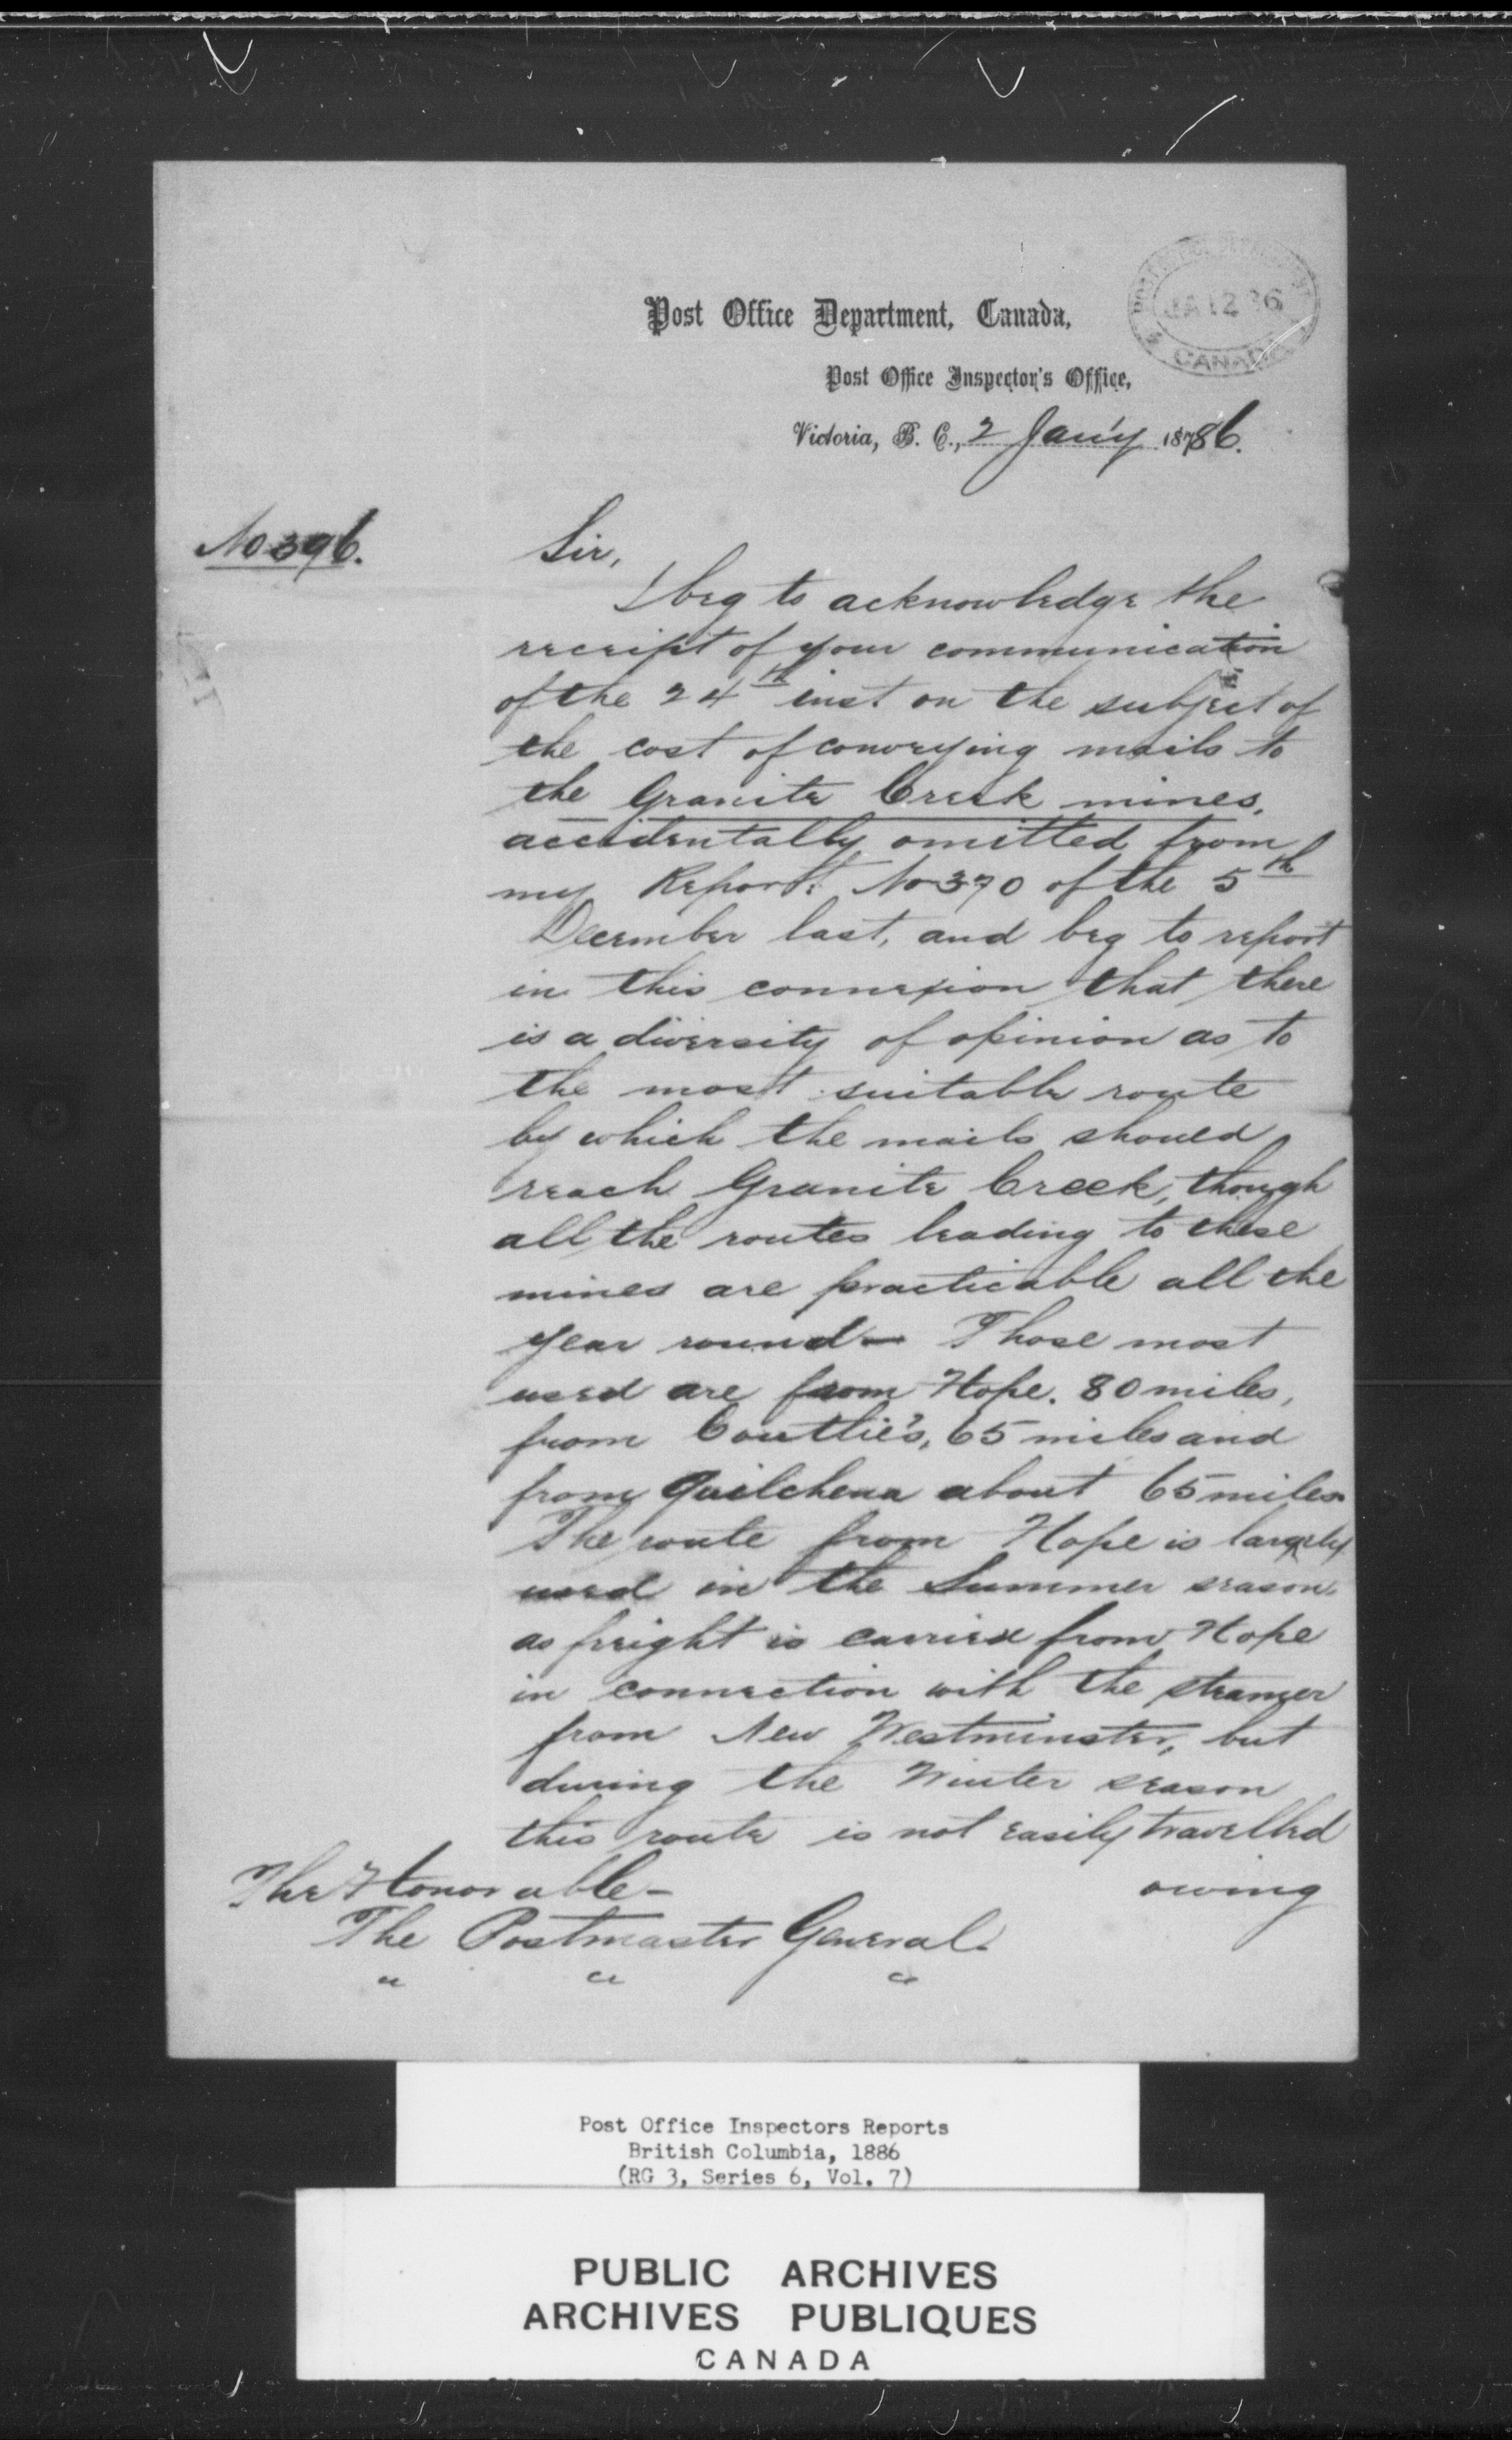 Post Office Department, Canada,
JA 12 86
CANADA
Post Office Inspector's Office,
Victoria, B. C., 2 Jan'y 1886.
No 396.
Sir,
I beg to acknowledge the
receipt of your communication
of the 24th inst on the subject of
the cost of conveying mails to
the Granite Creek mines,
accidentally omitted from
my Report No 370 of the 5th
December last, and beg to report
in this connexion that there
is a diversity of opinion as to
the most suitable route
by which the mails should
reach Granite Creek, though
all the routes leading to these
mines are practicable all the
year round - Those most
used are from Hope. 80 miles,
from Coutlie's, 65 miles and
from Quilchena about 65 miles.
The route from Hope is largely
used in the Summer season,
as freight is carried from Hope
in connection with the steamer
from New Westminster, but
during the Winter season
this route is not easily travelled
owing
The Honorable -
The Postmaster General.
" " "
Post Office Inspectors Reports
British Columbia, 1886
(RG 3, Series 6, Vol. 7)
PUBLIC ARCHIVES
ARCHIVES PUBLIQUES
CANADA